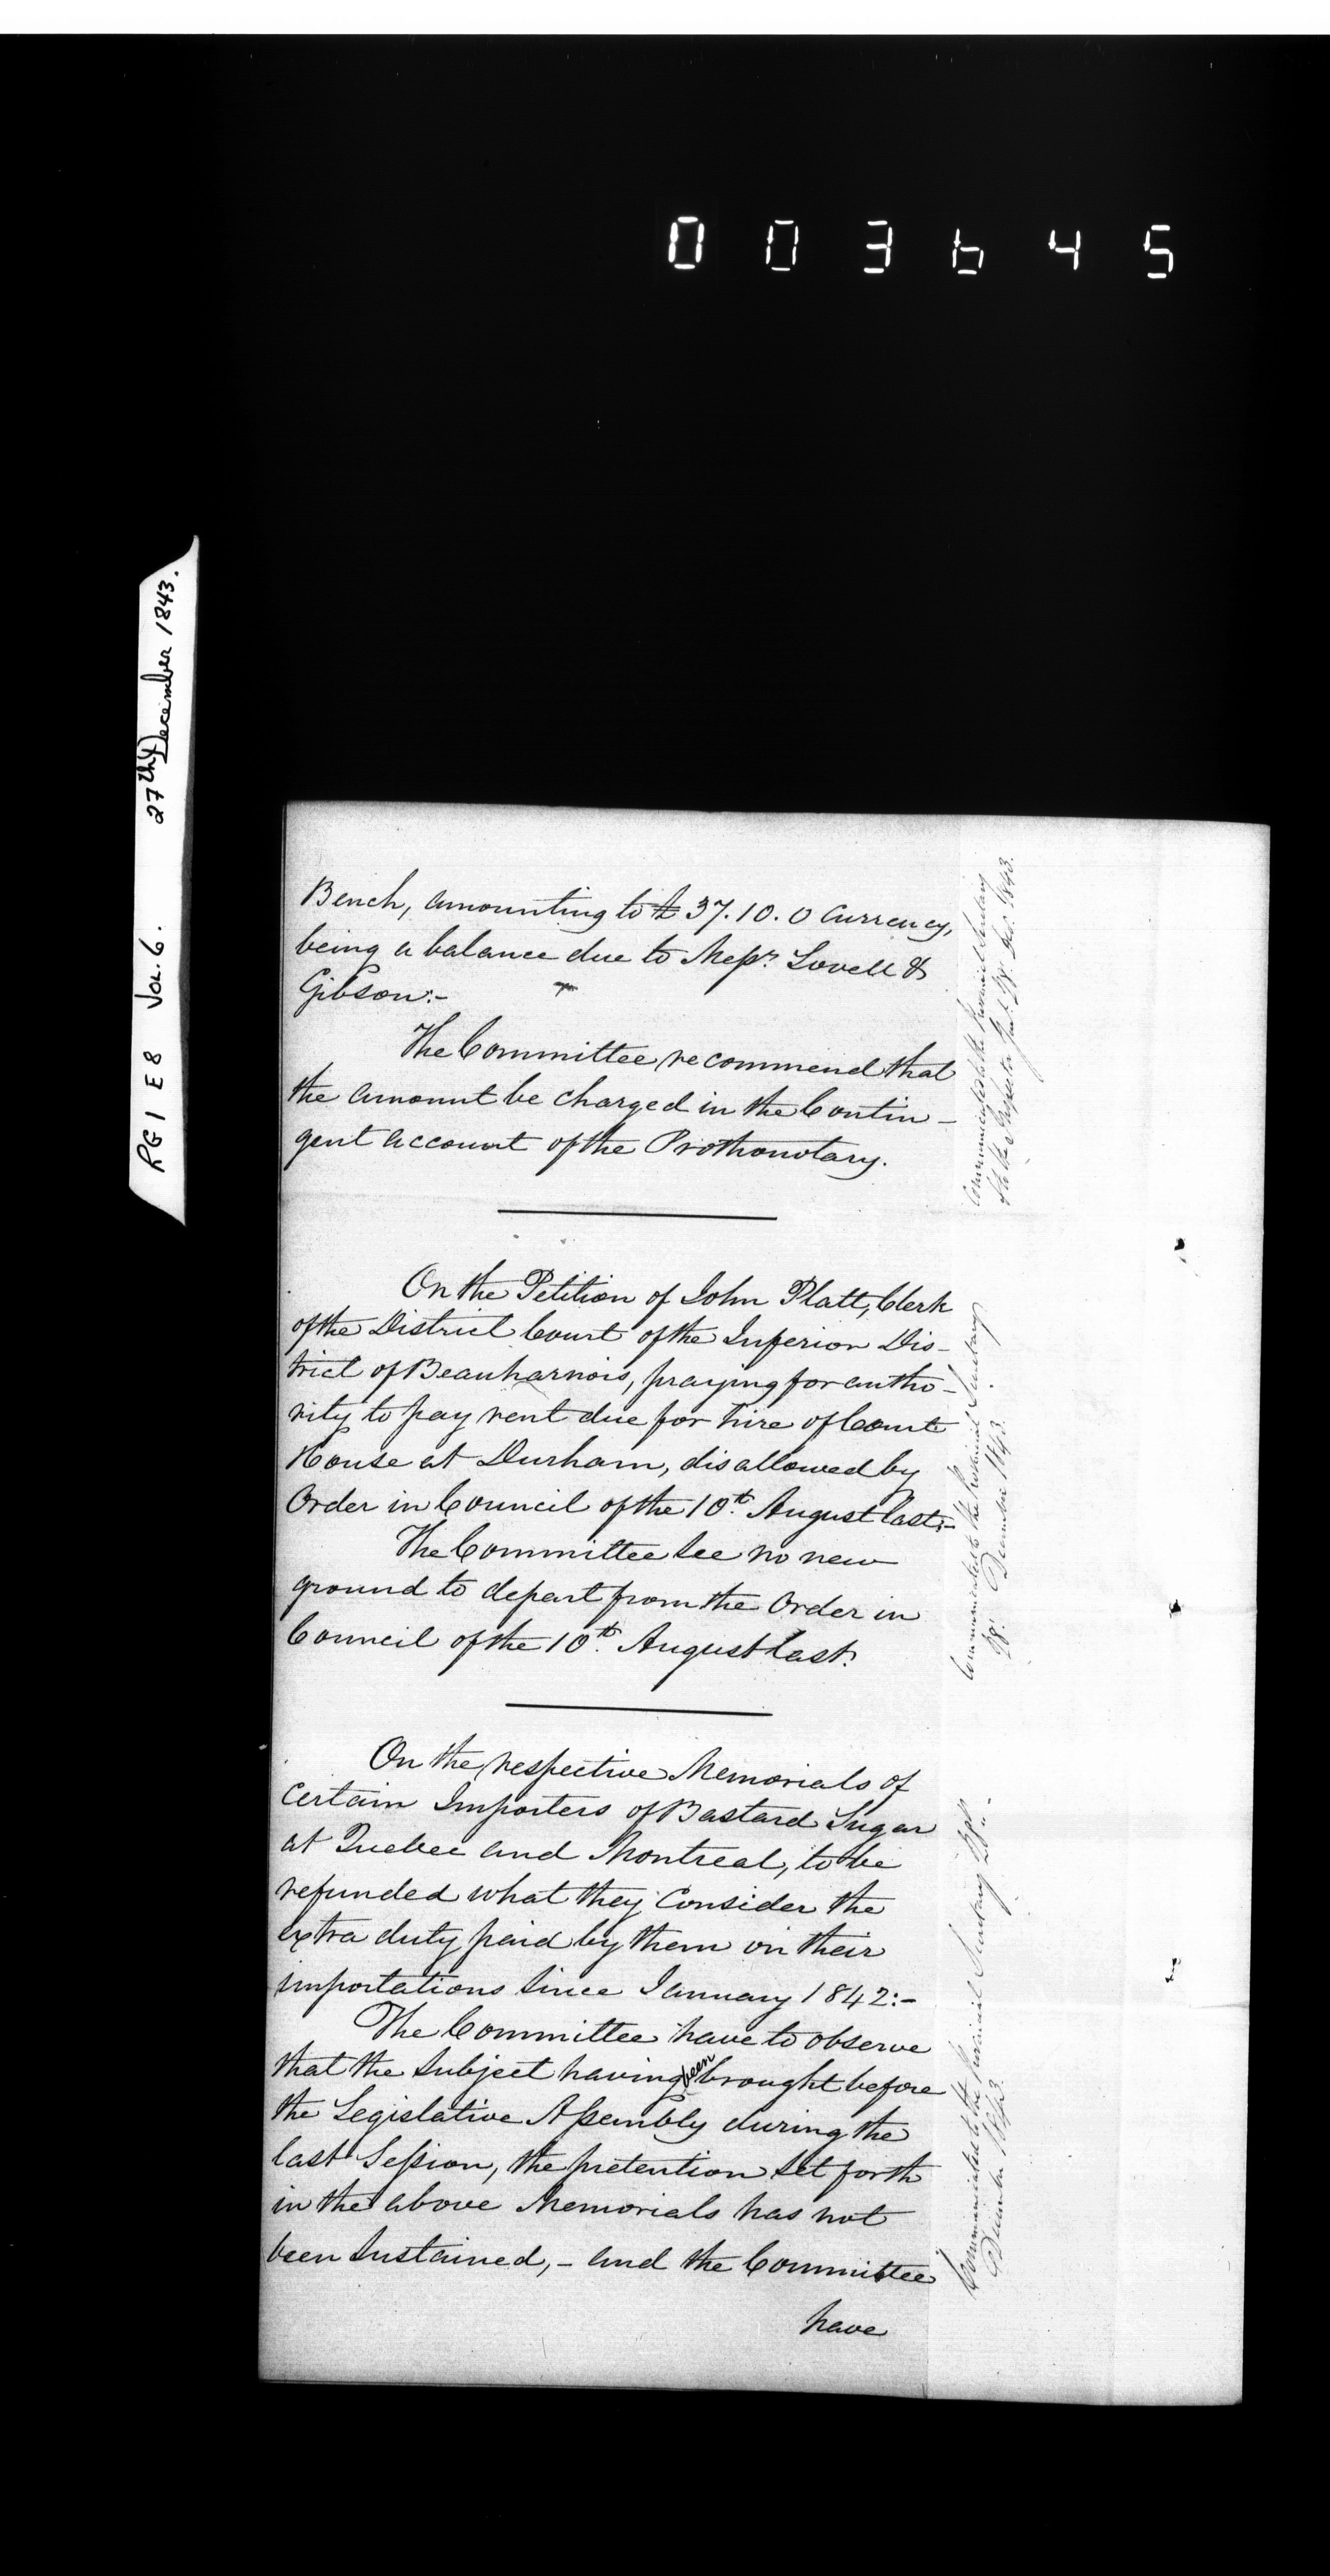 003645
RG 1 E 8 Vol. 6. 27th December 1843.
Bench, amounting to £37.10.0 Currency,
being a balance due to Messrs. Lovell &
Gibson:-
The Committee recommend that
the amount be charged in the Contin-
gent account of the Prothonotary.
On the Petition of John Platt, Clerk
of the District Court of the Inferior Dis-
trict of Beauharnois, praying for autho-
rity to pay rent due for hire of Court
House at Durham, disallowed by
Order in Council of the 10th. August last:-
The Committee see no new
ground to depart from the Order in
Council of the 10th. August last.
On the respective Memorials of
Certain Importers of Bastard Sugar
at Quebec and Montreal, to be
refunded what they Consider the
extra duty paid by them on their
importations since January 1842:-
The Committee have to observe
that the subject having been brought before
the Legislative Assembly during the
last Session, the pretention set forth
in the above Memorials has not
been sustained,- and the Committee
have
Communicated to the Provincial Secretary
& to the Inspector Genl. 28 Dec. 1843.
Communicated to the Provincial Secretary
28. December 1843.
Communicated to the Provincial Secretary 28th
December 1843.